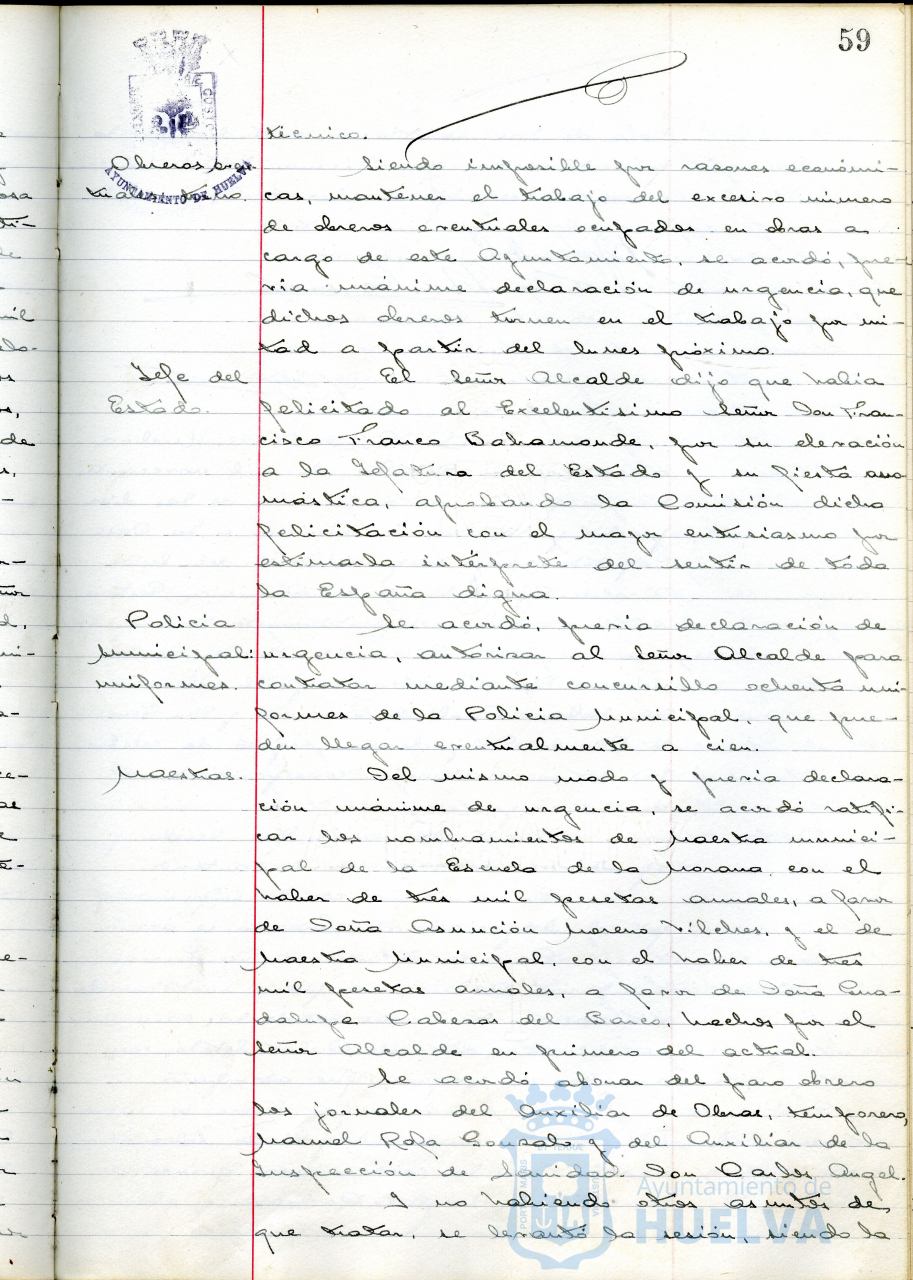 59
técnico.
Obreros even-
tuales. turno.
Siendo imposible por razones económi-
cas, mantener el trabajo del excesivo número
de obreros eventuales ocupados en obras a
cargo de este Ayuntamiento, se acordó, pre-
via unánime declaración de urgencia, que
dichos obreros turnen en el trabajo por mi-
tad a partir del lunes próximo.
Jefe del
Estado.
El Señor Alcalde dijo que había
felicitado al Excelentísimo Señor Don Fran-
cisco Franco Bahamonde, por su elevación
a la Jefatura del Estado y su fiesta ono
mástica, aprobando la Comisión dicha
felicitación con el mayor entusiasmo por
estimarla intérprete del sentir de toda
la España digna.
Policia
Municipal:
uniformes.
Se acordó, previa declaración de
urgencia, autorizar al Señor Alcalde para
contratar mediante concursillo ochenta uni-
formes de la Policia Municipal, que pue-
den llegar eventualmente a cien.
Maestras.
Del mismo modo y previa declara-
ción unánime de urgencia, se acordó ratifi-
car los nombramientos de Maestra munici-
pal de la Escuela de la Morana con el
haber de tres mil pesetas anuales, a favor
de Doña Asunción Moreno Vilches, y el de
Maestra Municipal, con el haber de tres
mil pesetas anuales, a favor de Doña Gua-
dalupe Cabezas del Barco, hechos por el
Señor Alcalde en primero del actual.
Se acordó abonar del paro obrero
los jornales del Auxiliar de Obras, temporero,
Manuel Rofa Gonzalo y del Auxiliar de la
Inspección de Sanidad Don Carlos Angel.
Y no habiendo otros asuntos de
que tratar, se levantó la sesión, siendo la
AYUNTAMIENTO DE HUELVA
Ayuntamiento de
HUELVA